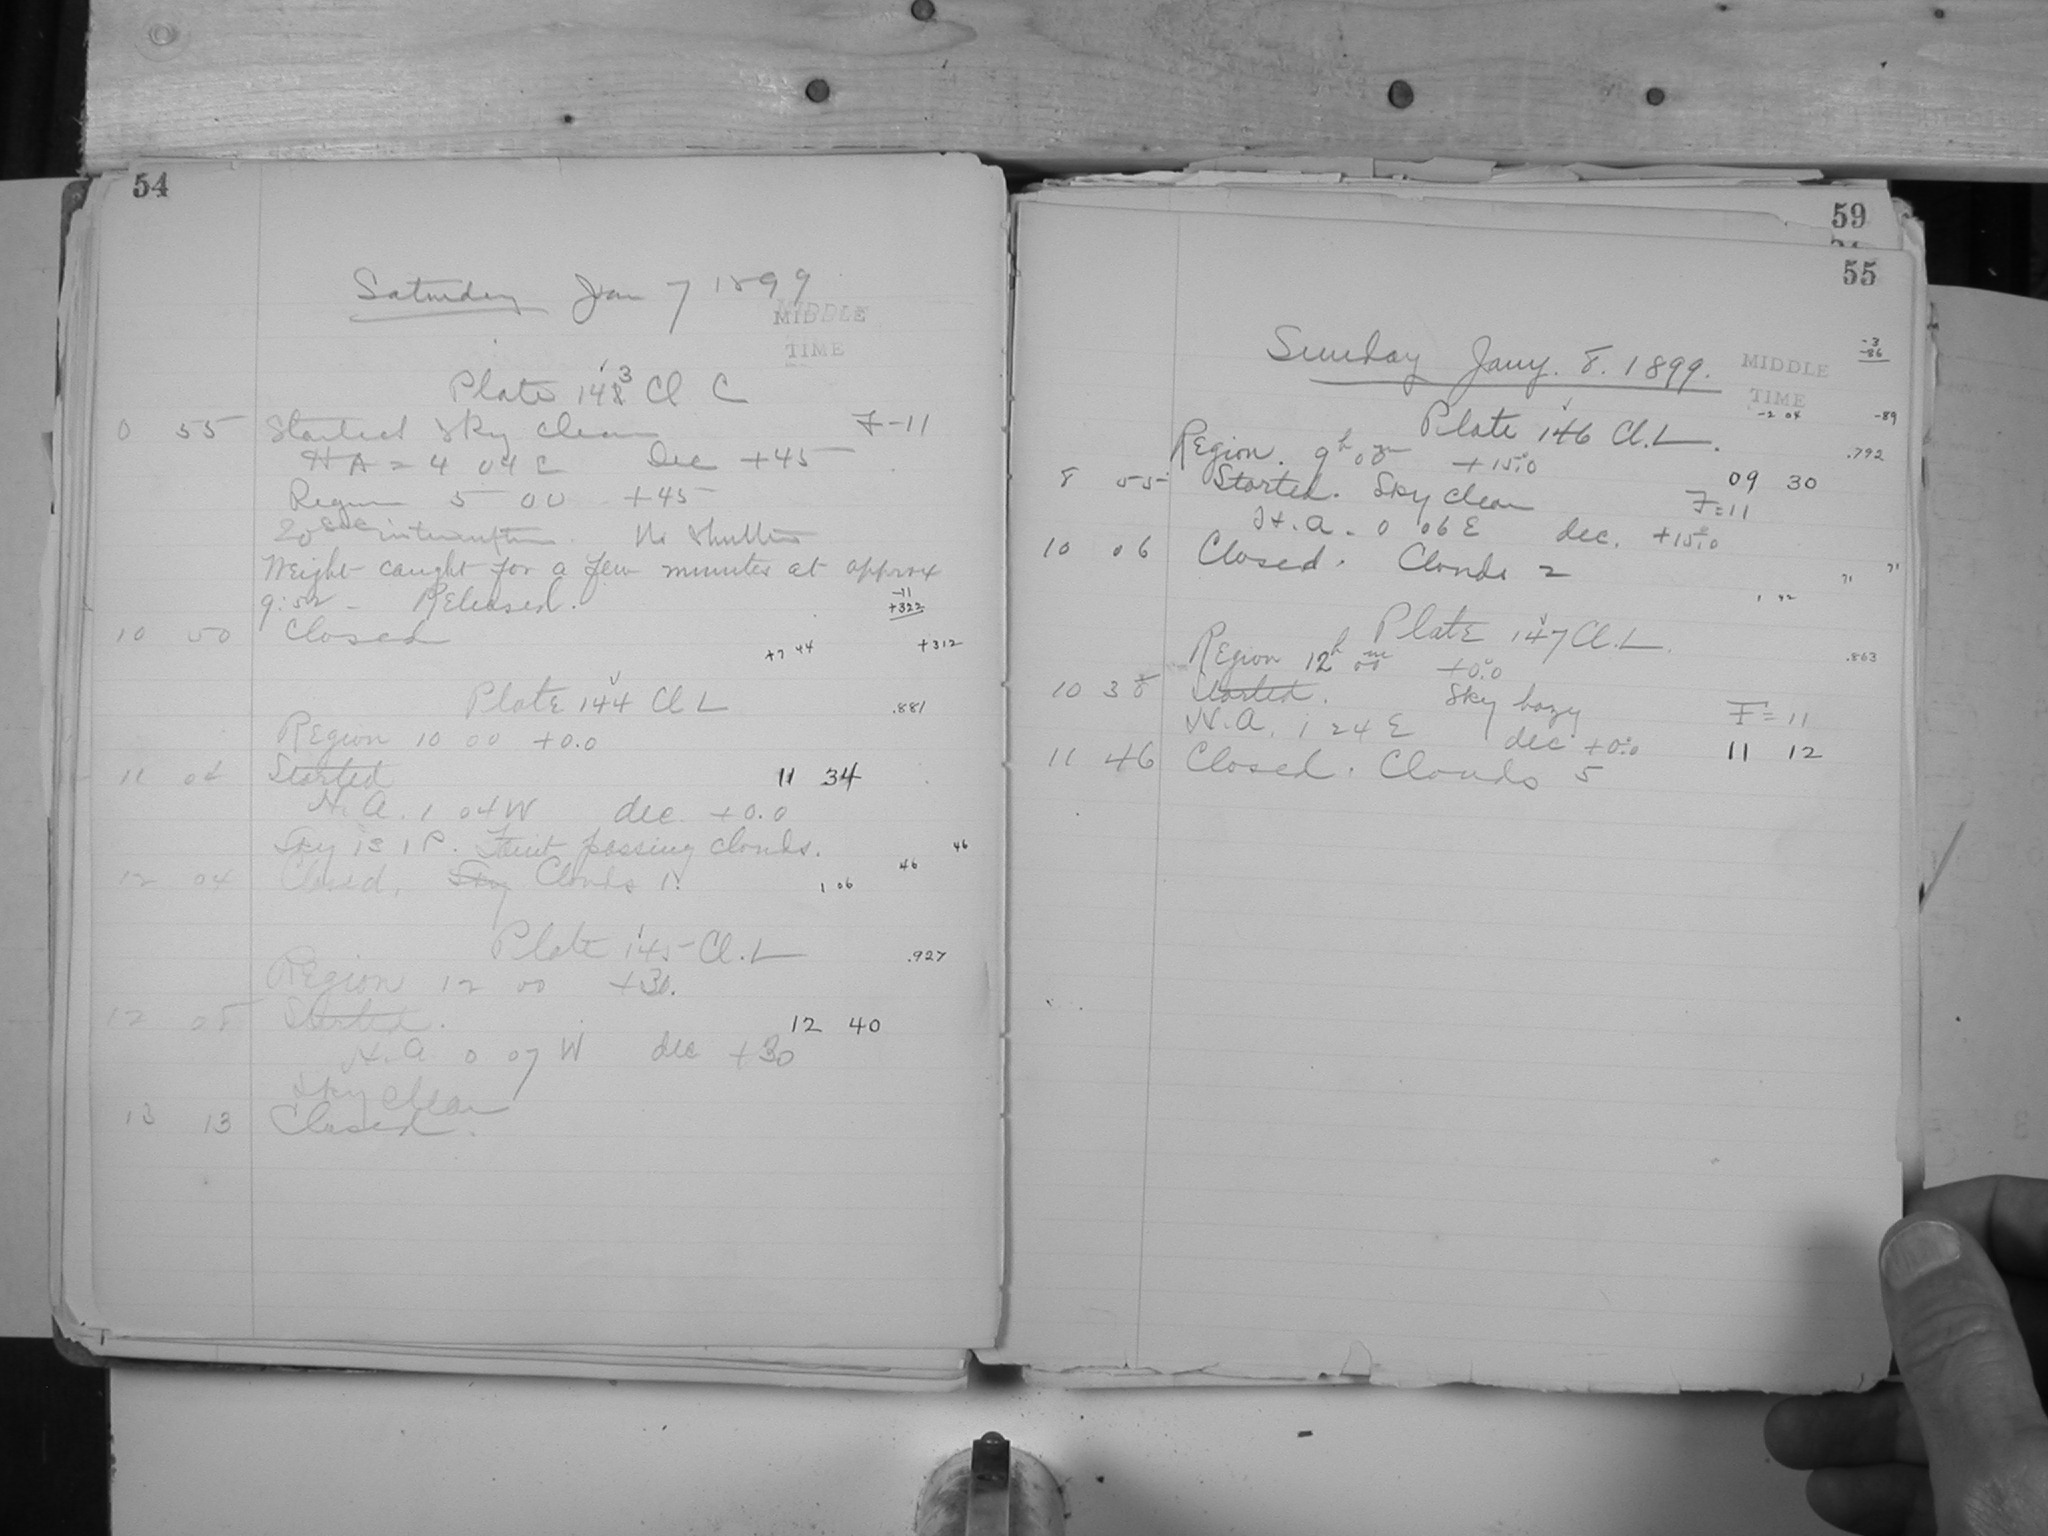 54
Saturday Jan 7 1899
MIDDLE
TIME
Plate 143 Cl C
0 55 Started Sky clear F-11
HA = 4 04 E Dec +45
Region 5 00 +45
20 sec interruption. No shutter
Weight caught for a few minutes at approx
9:52 - Released.
-11
+322
10 50 Closed
+7 44 +312
Plate 144 Cl L .881
Region 10 00 +0.0
11 04 Started 11 34
H.A. 1 04 W dec. +0.0
Sky is 1 P. Faint passing clouds.
46 46
12 04 Closed, Clouds 1.
1 06
Plate 145 Cl.L .927
Region 12 00 +30.
12 08 Started. 12 40
H.A 0 07 W dec +30
Sky clear
13 13 Closed.
59
55
Sunday Jany. 8. 1899.
MIDDLE
TIME
-3
-86
-2 04 -89
Plate 146 Cl.L.
.792
Region. 9h 0m +15°.0
8 55 Started. Sky clear F=11
09 30
H.A. 0 06 E dec. +15°.0
10 06 Closed. Clouds 2
71 71
1 42
Plate 147 Cl.L.
.863
Region 12h 00m +0°.0
10 38 Started. Sky hazy F=11
H.A. 1 24 E dec +0°.0 11 12
11 46 Closed. Clouds 5